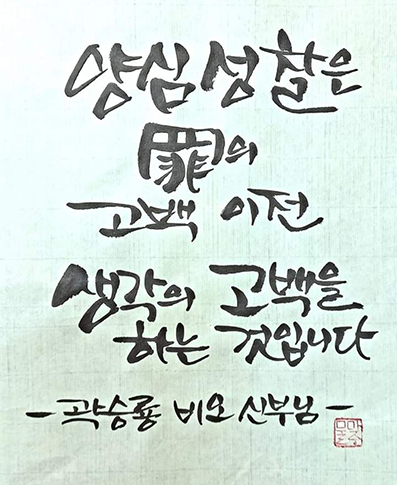 양심 성찰은
罪의
고백 이전
생각의 고백을
하는 것입니다
- 곽승룡 비오 신부님 -